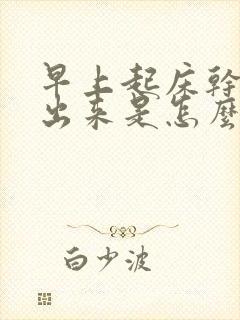 早上起床幹
出来是怎麼
白少波